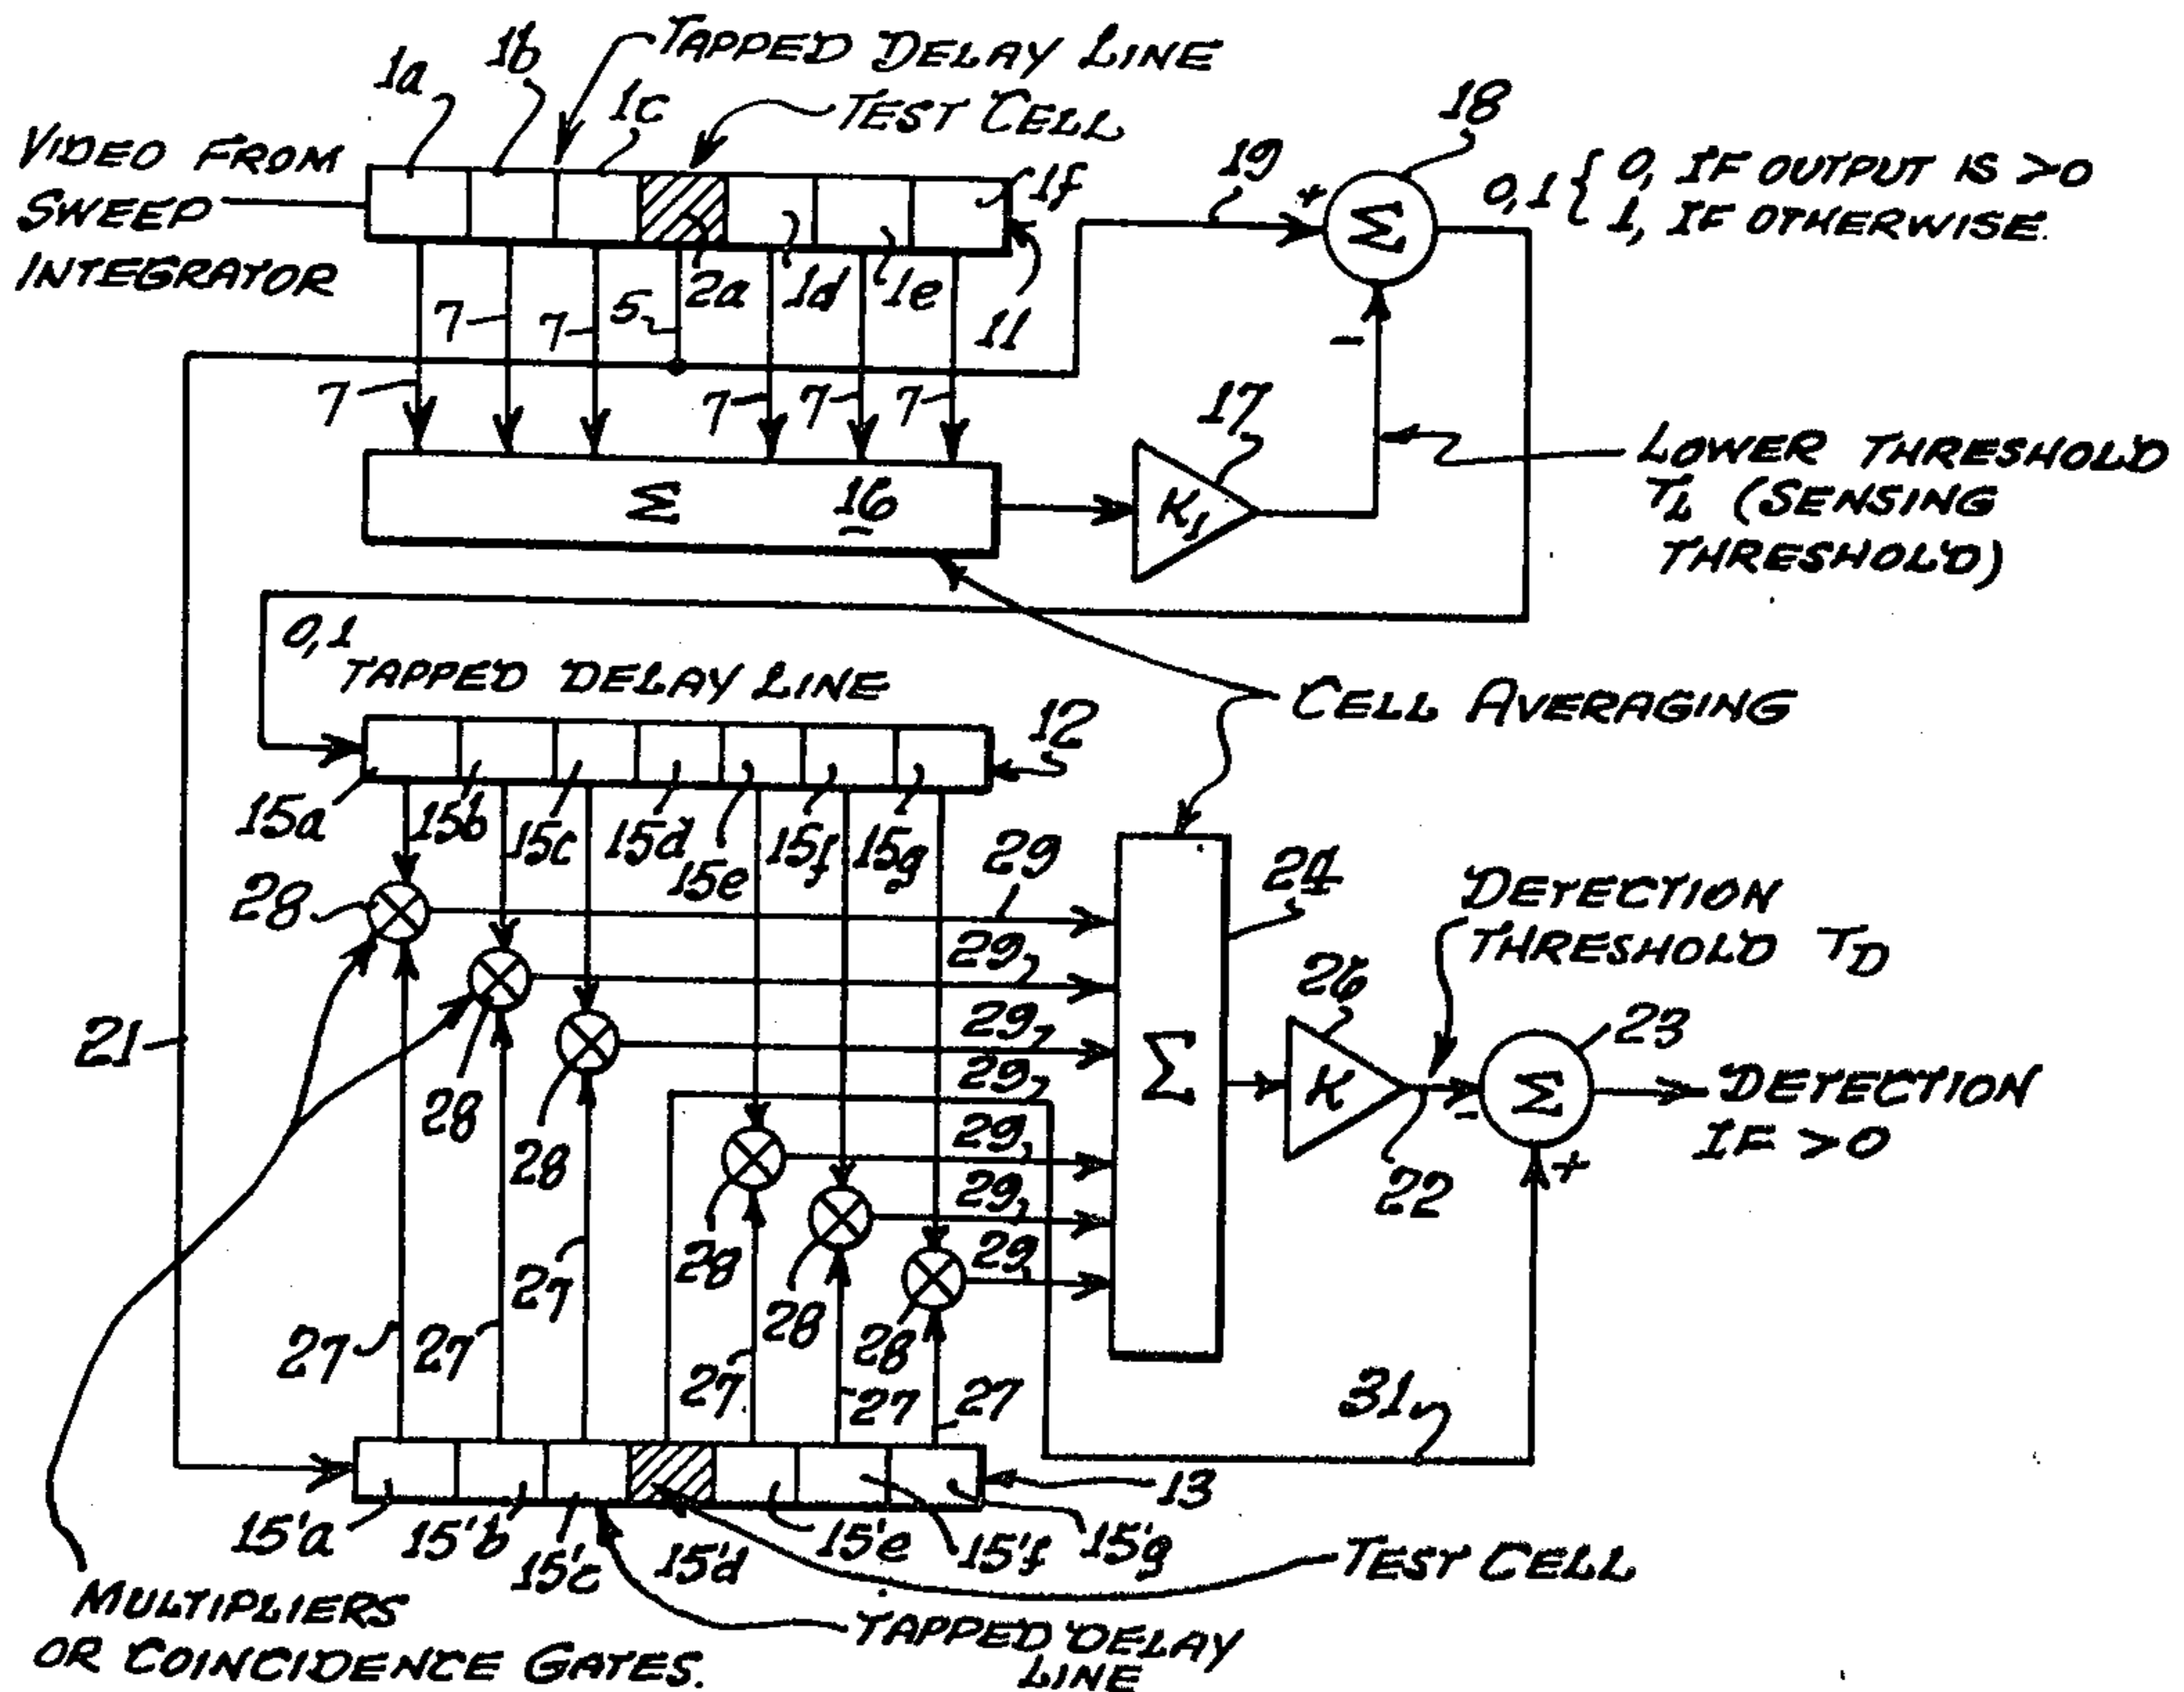 TAPPED DELAY LINE
1a
1b
1c
TEST CELL
18
VIDEO FROM
SWEEP
INTEGRATOR
1f
19
+
Σ
0,1 { 0, IF OUTPUT IS >0
1, IF OTHERWISE.
2a
1d
1e
11
7
7
5
−
7
7
7
7
17
Σ 16
K1
LOWER THRESHOLD
TL (SENSING
THRESHOLD)
0,1
TAPPED DELAY LINE
CELL AVERAGING
12
15a
15b
15c
15d
15e
15f
15g
29
24
28
DETECTION
THRESHOLD TD
29
26
29
23
21
28
29
Σ
K
Σ
DETECTION
IF >0
-
+
28
29
22
29
28
29
27
28
28
27
27
27
27
27
31
13
15'a
15'b
15'c
15'd
15'e
15'f
15'g
TEST CELL
MULTIPLIERS
OR COINCIDENCE GATES.
TAPPED DELAY
LINE